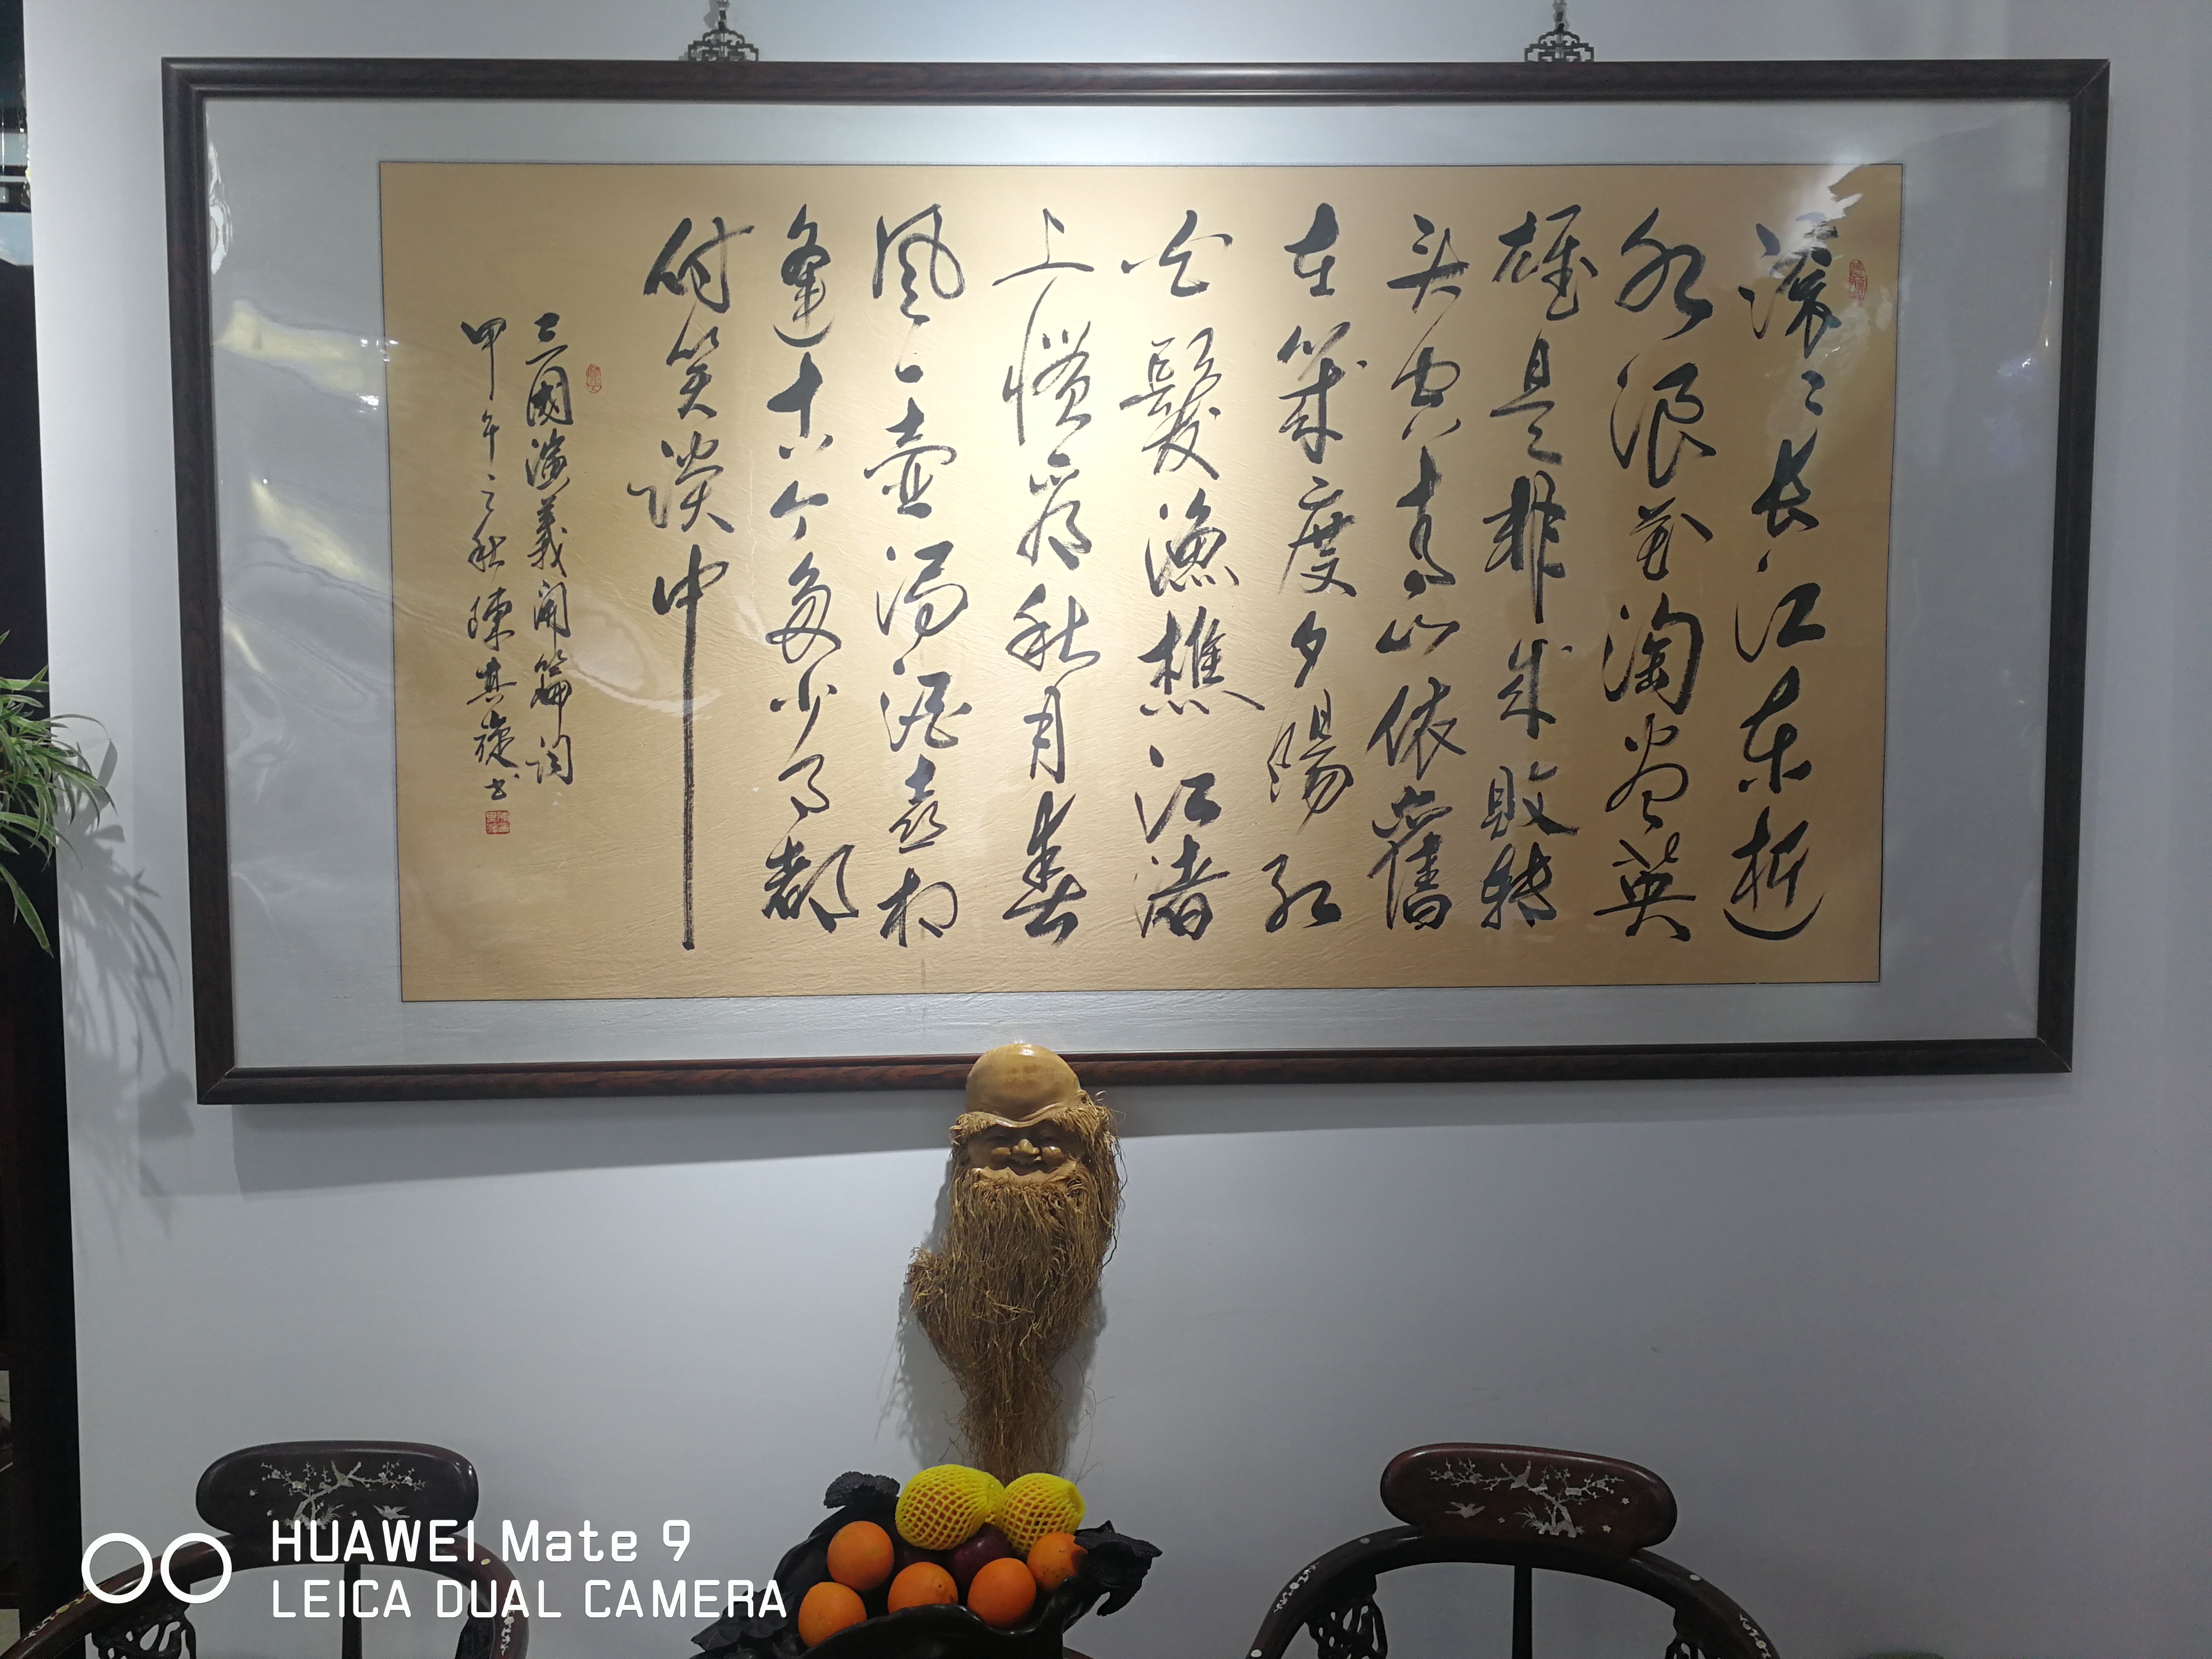 滚〻长江东逝
水浪花淘尽英
雄是非成败转
头空青山依舊
在幾度夕陽红
白髮漁樵江渚
上惯看秋月春
风一壶濁酒喜相
逢古今多少事都
付笑谈中
三國演義開篇词
甲午之秋陳其书
HUAWEI Mate 9
LEICA DUAL CAMERA